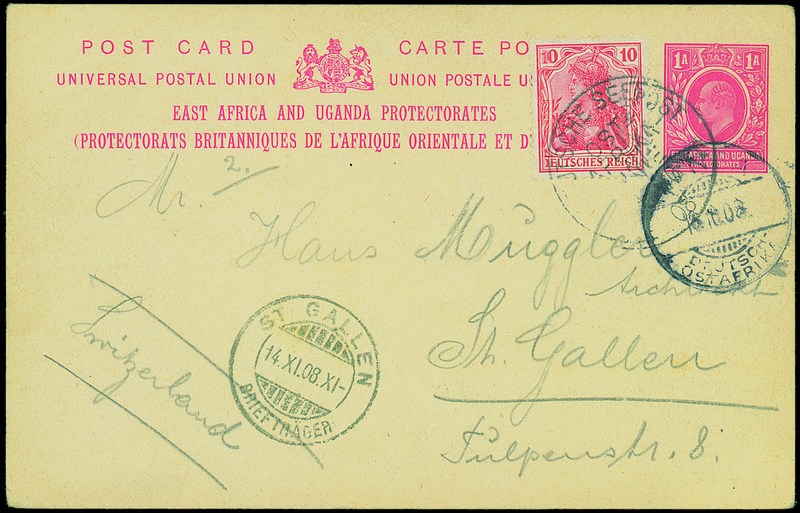 POST CARD CARTE PO
UNIVERSAL POSTAL UNION UNION POSTALE U
EAST AFRICA AND UGANDA PROTECTORATES
(PROTECTORATS BRITANNIQUES DE L'AFRIQUE ORIENTALE ET D
10 10
DEUTSCHES REICH
1A 1A
EAST AFRICA AND UGANDA
PROTECTORATES
SCHE SEEPOST
OST
DEUTSCH-
OSTAFRIKA
2.
Mr. Hans Müggler
Architekt
St. Gallen
Tulpenstr. 8.
Switzerland
ST GALLEN
14.XI.08.XI-
BRIEFTRÄGER